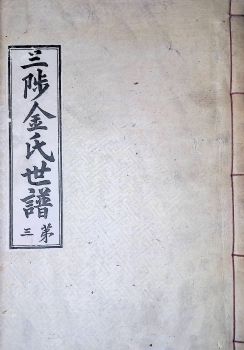 三陟金氏世譜
第三